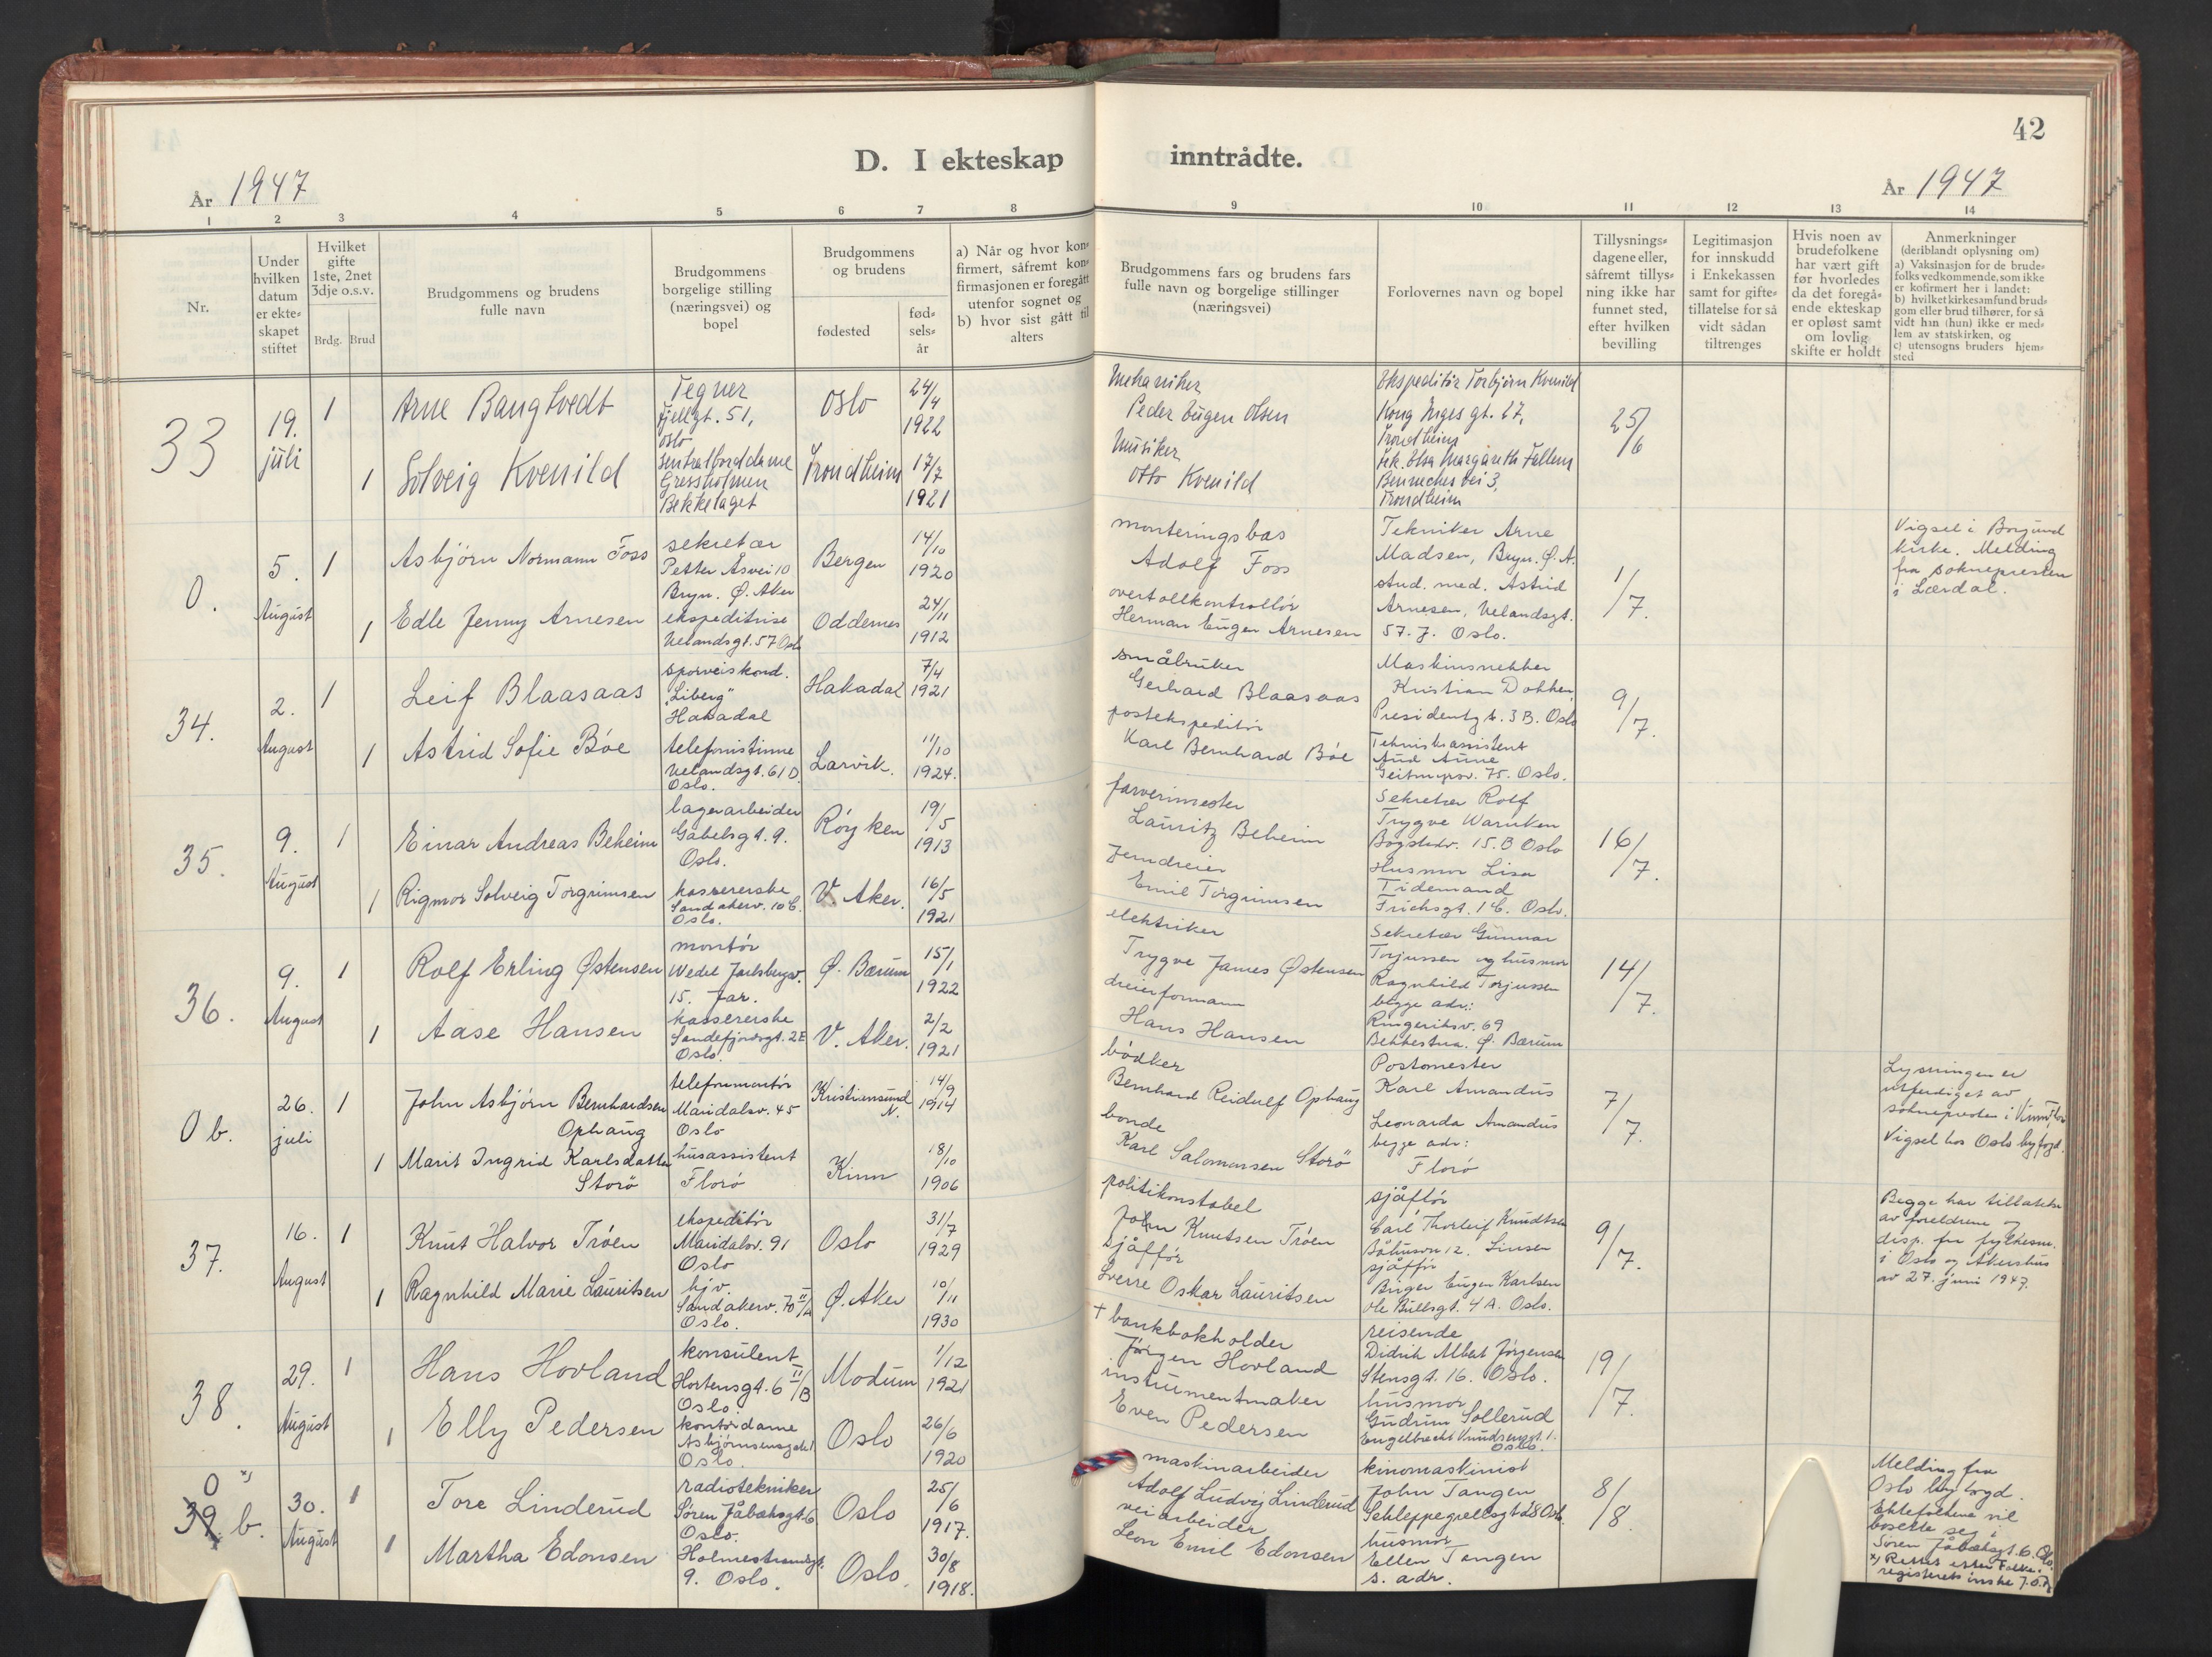 42
D. I ekteskap inntrådte.
År 1947
År 1947
1 2 3 4 5 6 7 8 9 10 11 12 13 14
Nr.
Under hvilken datum er ekte-skapet stiftet
Hvilket gifte 1ste, 2net 3dje o.s.v.
Brdg. Brud
Brudgommens og brudens fulle navn
Brudgommens borgelige stilling (næringsvei) og bopel
Brudgommens og brudens
fødested
fød-sels-år
a) Når og hvor kon-firmert, såfremt kon-firmasjonen er foregått utenfor sognet og
b) hvor sist gått til alters
Brudgommens fars og brudens fars fulle navn og borgelige stillinger (næringsvei)
Forlovernes navn og bopel
Tillysnings-dagene eller, såfremt tillys-ning ikke har funnet sted, efter hvilken bevilling
Legitimasjon for innskudd i Enkekassen samt for gifte-tillatelse for så vidt sådan tiltrenges
Hvis noen av brudefolkene har vært gift før hvorledes da det foregå-ende ekteskap er opløst samt om lovlig skifte er holdt
Anmerkninger (deriblandt oplysning om)
a) Vaksinasjon for de brude-folks vedkommende, som ikke er kofirmert her i landet:
b) hvilket kirkesamfund brud-gom eller brud tilhører, for så vidt han (hun) ikke er med-lem av statskirken, og
c) utensogns bruders hjem-sted
33
19. juli
1
Arne Bangtvedt
Tegner
Fjellgt. 51,
Oslo
Oslo
24/4
1922
Mekaniker
Peder Eugen Olsen
Ekspeditør Torbjørn Kvenild
Kong Inges gt. 27,
Trondheim
25/6
1
Solveig Kvenild
Sentralborddame
Gressholmen
Bekkelaget
Trondheim
17/7
1921
Musiker
Otto Kvenild
frk. Elsa Margareth
vei 3,
Trondheim
0.
5. August
1
Asbjörn Normann Foss
sekretær
Petter Åsvei 10
Bryn. Ø. Aker
Bergen
14/10
1920
monteringsbas
Adolf Foss
Tekniker Arne
Madsen, Bryn. Ø. A.
1/7.
Vigsel i Borgund
kirke. Melding
fra soknepresten
i Lærdal.
1
Edle Jenny Arnesen
ekspeditrise
Uelandsgt. 57 Oslo
Oddernes
24/11
1912
overtollkontrollör
Herman Eugen Arnesen
stud. med. Astrid
Arnesen, Uelandsgt.
57. J. Oslo.
34.
2. August
1
Leif Blaasaas
sporveiskond.
"Liberg"
Hakadal
Hakadal
7/4
1921
småbruker
Gerhard Blaasaas
Maskinsnekker
Kristian Dokken,
Presidentgt. 3 B. Oslo
9/7.
1
Astrid Sofie Böe
telefonistinne
Uelandsgt. 61 D
Oslo.
Larvik.
11/10
1924.
postekspeditör
Karl Bernhard Böe
Tekniskassistent
Aud Aune
75. Oslo.
35.
9. August
1
Einar Andreas Beheim
lagerarbeider
Gabelsgt. 9.
Oslo.
Röyken
19/5
1913
farverimester
Lauritz Beheim
Sekretær Rolf
Trygve Warnken
Bogstadv. 15. B Oslo
16/7.
1
Rigmor Solveig Torgrimsen
kassererske
Sandakerv. 10 C.
Oslo.
V. Aker.
16/5
1921
Jerndreier
Emil Torgrimsen
Husmor Lisa
Tidemand
Frichsgt. 1 C. Oslo.
36.
9. August
1
Rolf Erling Østensen
montör
Wedel Jarlsbergsv.
15. Jar.
Ø. Bærum
15/1
1922
elektriker
Trygve James Østensen
Sekretær Gunnar
Torjussen og husmor
Ragnhild Torjussen
begge adr.:
Ringeriksv. 69
Bekkestua. Ø. Bærum
14/7.
1
Aase Hansen
kassererske
Sandefjordsgt. 2E
Oslo.
V. Aker.
2/2
1921
dreierformann
Hans Hansen
0 b.
26. juli
1
John Asbjörn Bernhardsen
Ophaug
telefonmontör
Maridalsv. 45
Oslo
Kristiansund
N.
14/9
1914
bödker
Bernhard Reidulf Ophaug
Postmester
Karl Amandus
Leonarda Amandus
begge adr:
Florö
7/7.
Lysningen er
utferdiget av
soknepresten i
Vigsel hos Oslo byfogd.
1
Marit Ingrid Karlsdatter
Storö
husassistent
Florö
Kinn
18/10
1906
bonde
Karl Salomonsen Storö
37.
16. August
1
Knut Halvor Tröen
ekspeditör
Maridalsv. 91
Oslo
Oslo
31/7
1929
politikonstabel
John Knutsen Tröen
sjåfför
Carl Thorleif Knudtsen
12.
9/7.
Begge har tillatelse
av foreldrene og
disp. fra fylkesm.
i Oslo og Akershus
av 27. juni 1947.
1
Ragnhild Marie Lauritsen
hjv.
Sandakerv. 70 II/A
Oslo.
Ø. Aker
10/11
1930
sjåfför
Sverre Oskar Lauritsen
sjåfför
Birger Eugen Karlsen
Ole Bullsgt. 4 A. Oslo.
38.
29. August
1
Hans Hovland
konsulent
Hortensgt. 6 II/B
Oslo.
Modum
1/12
1921
+ bankbokholder
Jörgen Hovland
reisende
Didrik Albert Jörgensen
Stensgt. 16. Oslo.
19/7.
1
Elly Pedersen
kontordame
Asbjörnsensgate 1
Oslo.
Oslo
26/6
1920
instrumentmaker
Even Pedersen
husmor
Gudrun Sollerud
Engelbrecht Knudsensgt. 1.
Oslo.
0 x)
39. b.
30. August
1
Tore Linderud
radiotekniker
Sören Jåbæksgt. 6
Oslo.
Oslo
25/6
1917.
maskinarbeider
Adolf Ludvig Linderud
kinomaskinist
John Tangen
Schleppegrellsgt 28 Oslo.
8/8.
Melding fra
Oslo byfogd.
Ektefolkene vil
bosette seg i
Sören Jåbæksgt. 6. Oslo.
x) Rettet etter Folke-
registerets ønske
1
Martha Edonsen
Holmestrandgt.
9. Oslo.
Oslo.
30/8
1918.
veiarbeider
Leon Emil Edonsen
husmor
Ellen Tangen
s. adr.